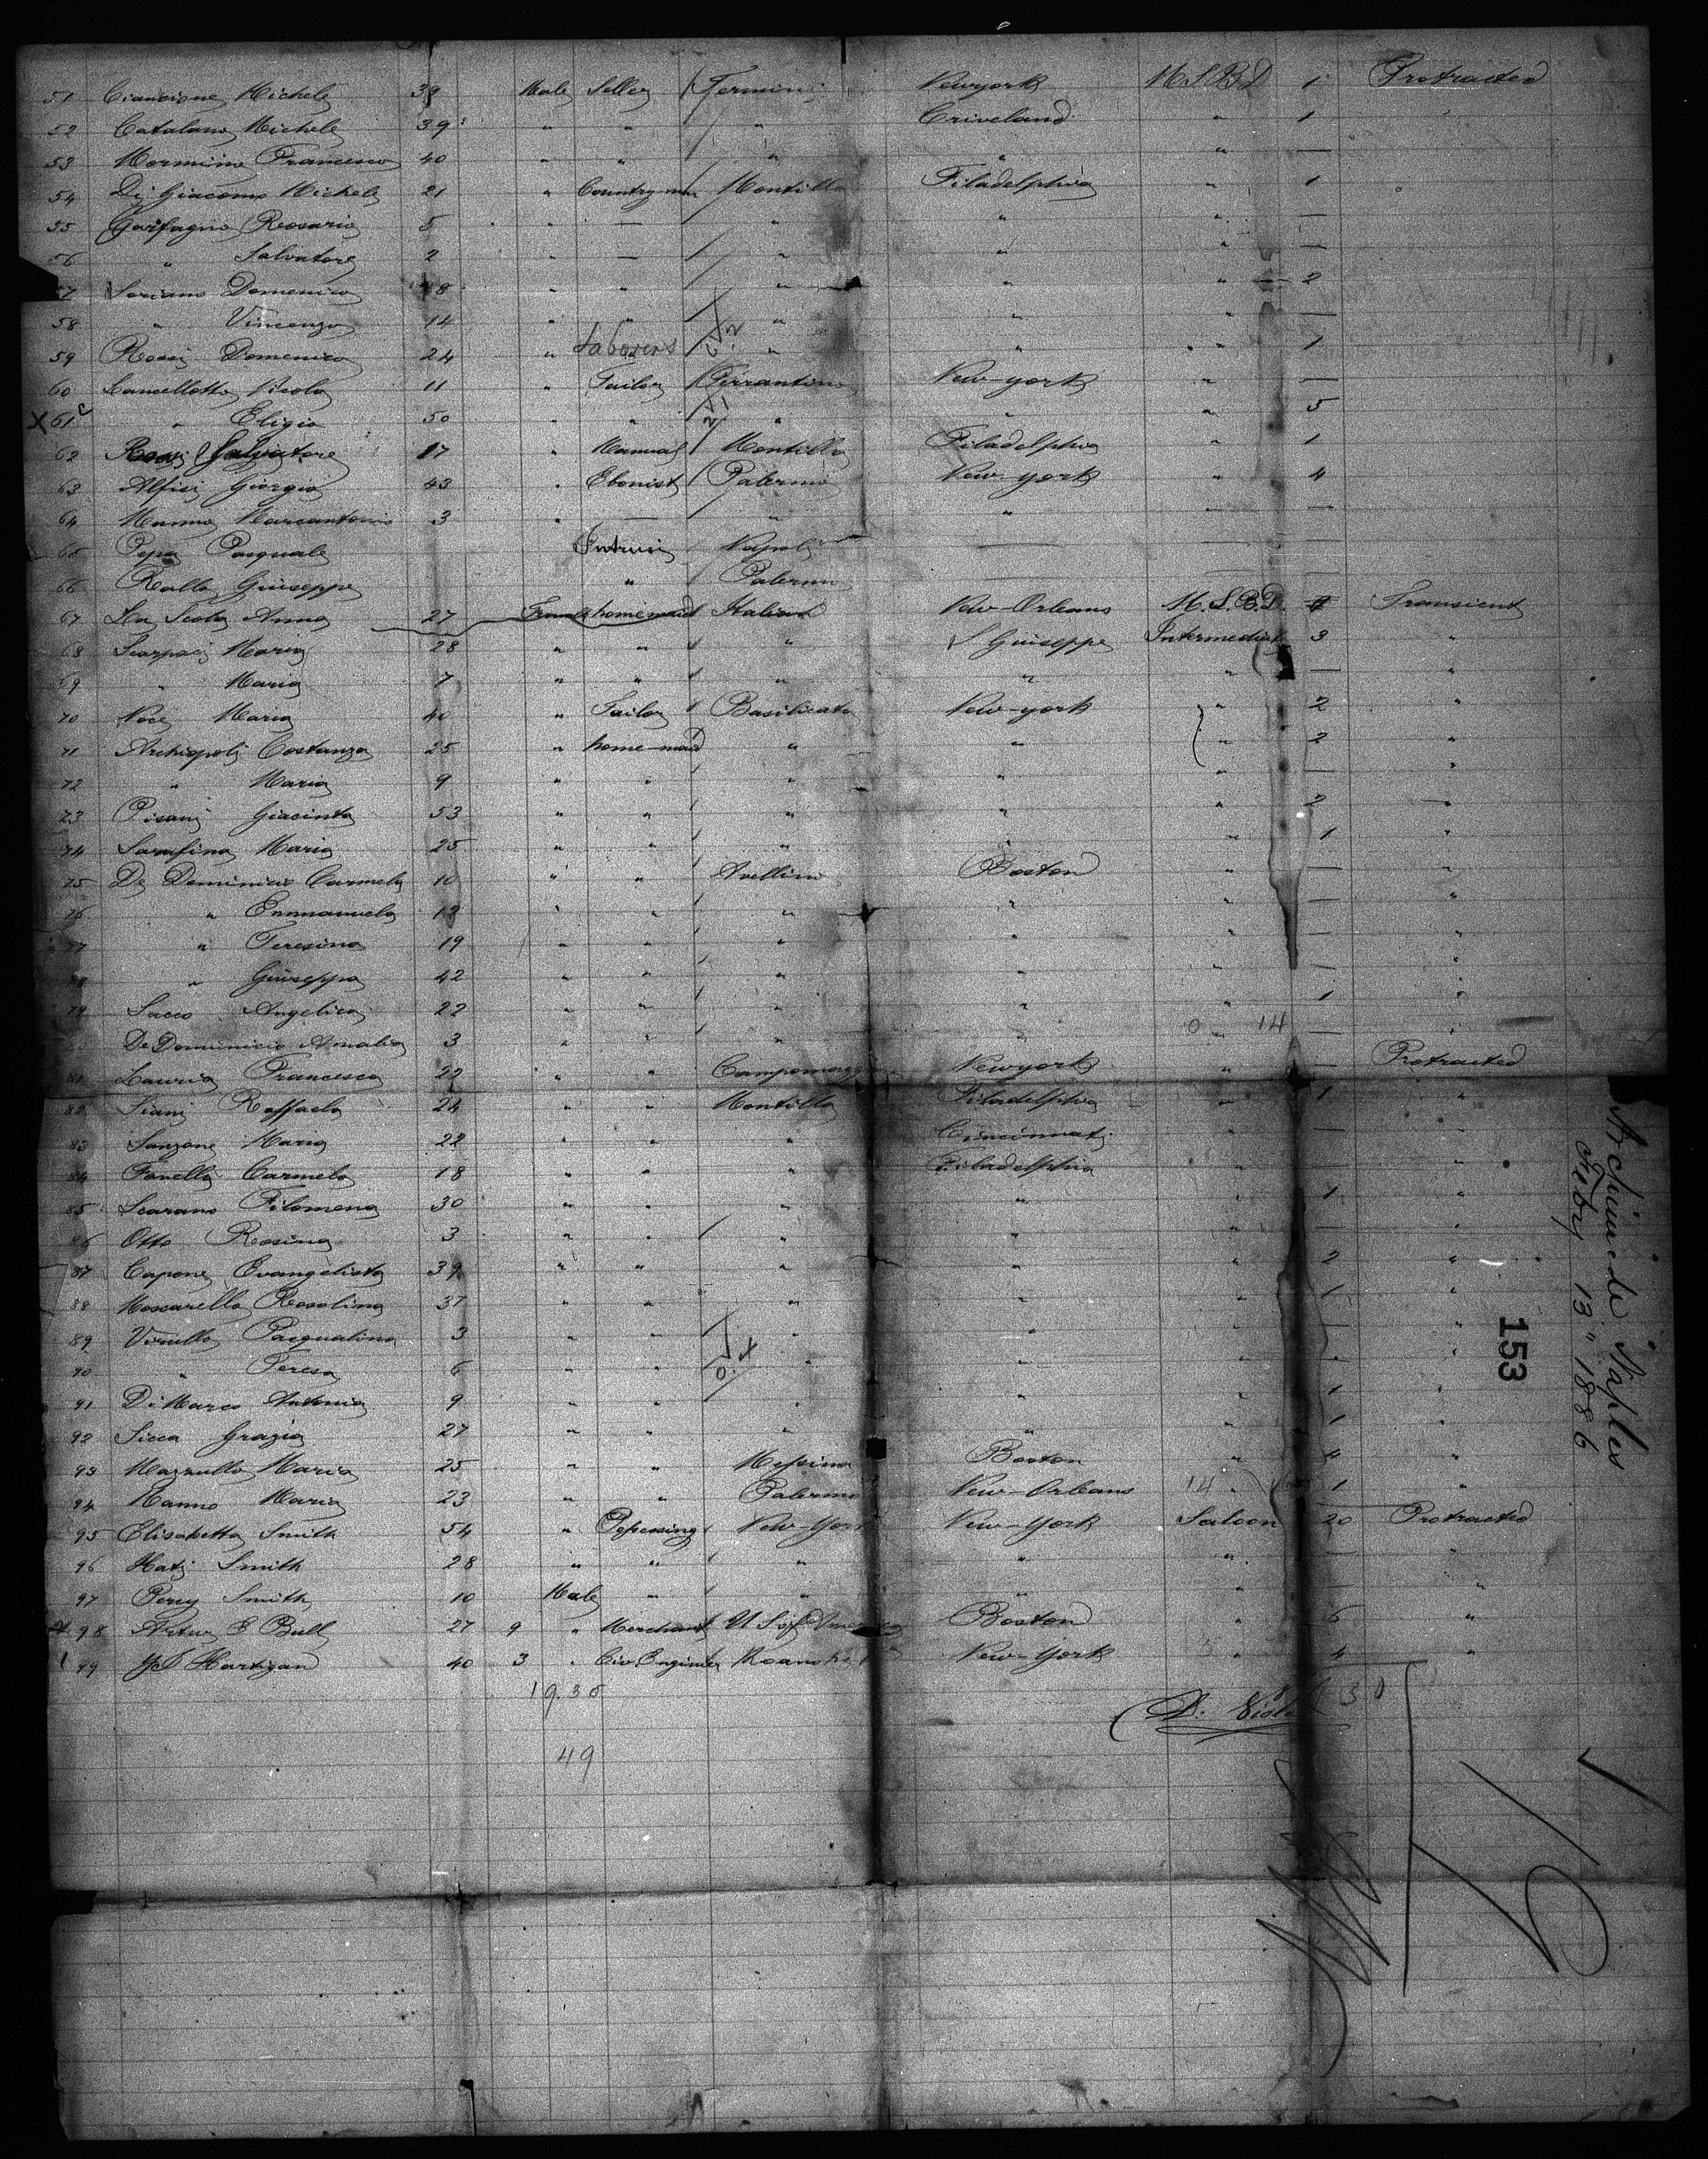 51 Ciancione Michele 39 Male Seller Termini Newyork M.S.B.D 1 Protracted
52 Catalano Michele 39 " " " Criveland " 1
53 Mormino Francesco 40 " " " " " —
54 Di Giacomo Michele 21 " Countryman Montilla Filadelphia " 1
55 Garfagno Rosario 5 " — " " " —
56 " Salvatore 2 " — " " " —
57 Soriano Domenico 48 " " " " " 2
58 " Vincenzo 14 " " " " " —
59 Rossi Domenico 24 " Laborers " " " 1
60 Cancellotti Nicola 11 " Tailor Ferrantino New-york " —
X 61 " Eligio 50 " " " " " 5
62 Rossi Salvatore 17 " Manual Montilla Filadelphia " 1
63 Alfisi Giorgio 43 " Ebonist Palermo New-york " 4
64 Manno Marcantonio 3 " — " " " —
65 Pepa Pasquale Intrusi Napoli — — —
66 Rallo Giuseppe " Palermo — — —
67 La Scola Anna 27 Female homemaid Italian New-Orleans M.S.B.D. Transient
68 Scarpaci Maria 28 " " " S Giuseppe Intermediate 3 "
69 " Maria 7 " " " " " — "
70 Noce Maria 40 " Tailor Basilicata New-york " 2 "
71 Archiopoli Costanza 25 " home-maid " " " 2 "
72 " Maria 9 " " " " " — "
73 Pisani Giacinta 53 " " " " " 2 "
74 Sarafina Maria 25 " " " " " 1 "
75 De Dominicis Carmela 10 " " Avellino Boston " — "
76 " Emmanuela 12 " " " " " — "
77 " Teresina 19 " " " " " — "
" Giuseppa 42 " " " " " — "
79 Sacco Angelica 22 " " " " " 1 "
De Dominicis Amalia 3 " " " " 0 14 — "
81 Lauria Francesca 22 " " Campomaggiore Newyork " — Protracted
82 Siani Raffaela 24 " " Montilla Filadelphia " 1 "
83 Sanzone Maria 22 " " " Cincinnati " — "
84 Fanella Carmela 18 " " " Filadelphia " — "
85 Scarano Filomena 30 " " " " " 1 "
86 Otto Rosina 3 " " " " " — "
87 Capone Evangelista 39 " " " " " 2 "
88 Moscarella Rosolina 37 " " " " " 1 "
89 Virullo Pasqualina 3 " " " " " — "
90 " Teresa 6 " " " " " — "
91 Di Marco Antonia 9 " " " " " 1 "
92 Sicca Grazia 27 " " " " " 1 "
93 Mazzullo Maria 25 " " Messina Boston " 4 "
94 Manno Maria 23 " " Palermo New-Orleans 14 " 1 "
95 Elisabetta Smith 54 " New-York New-York Saloon 20 Protracted
96 Katy Smith 28 " " " " " — "
97 Percy Smith 10 Male " " " " — "
98 Artur E Bull 27 9 " Merchant U.S. of America Boston " 6 "
99 Hartigan 40 3 " Civ. Engineer Roanoke New-York " 4 "
19.30
49
Archimede Naples
Feby 13" 1886
153